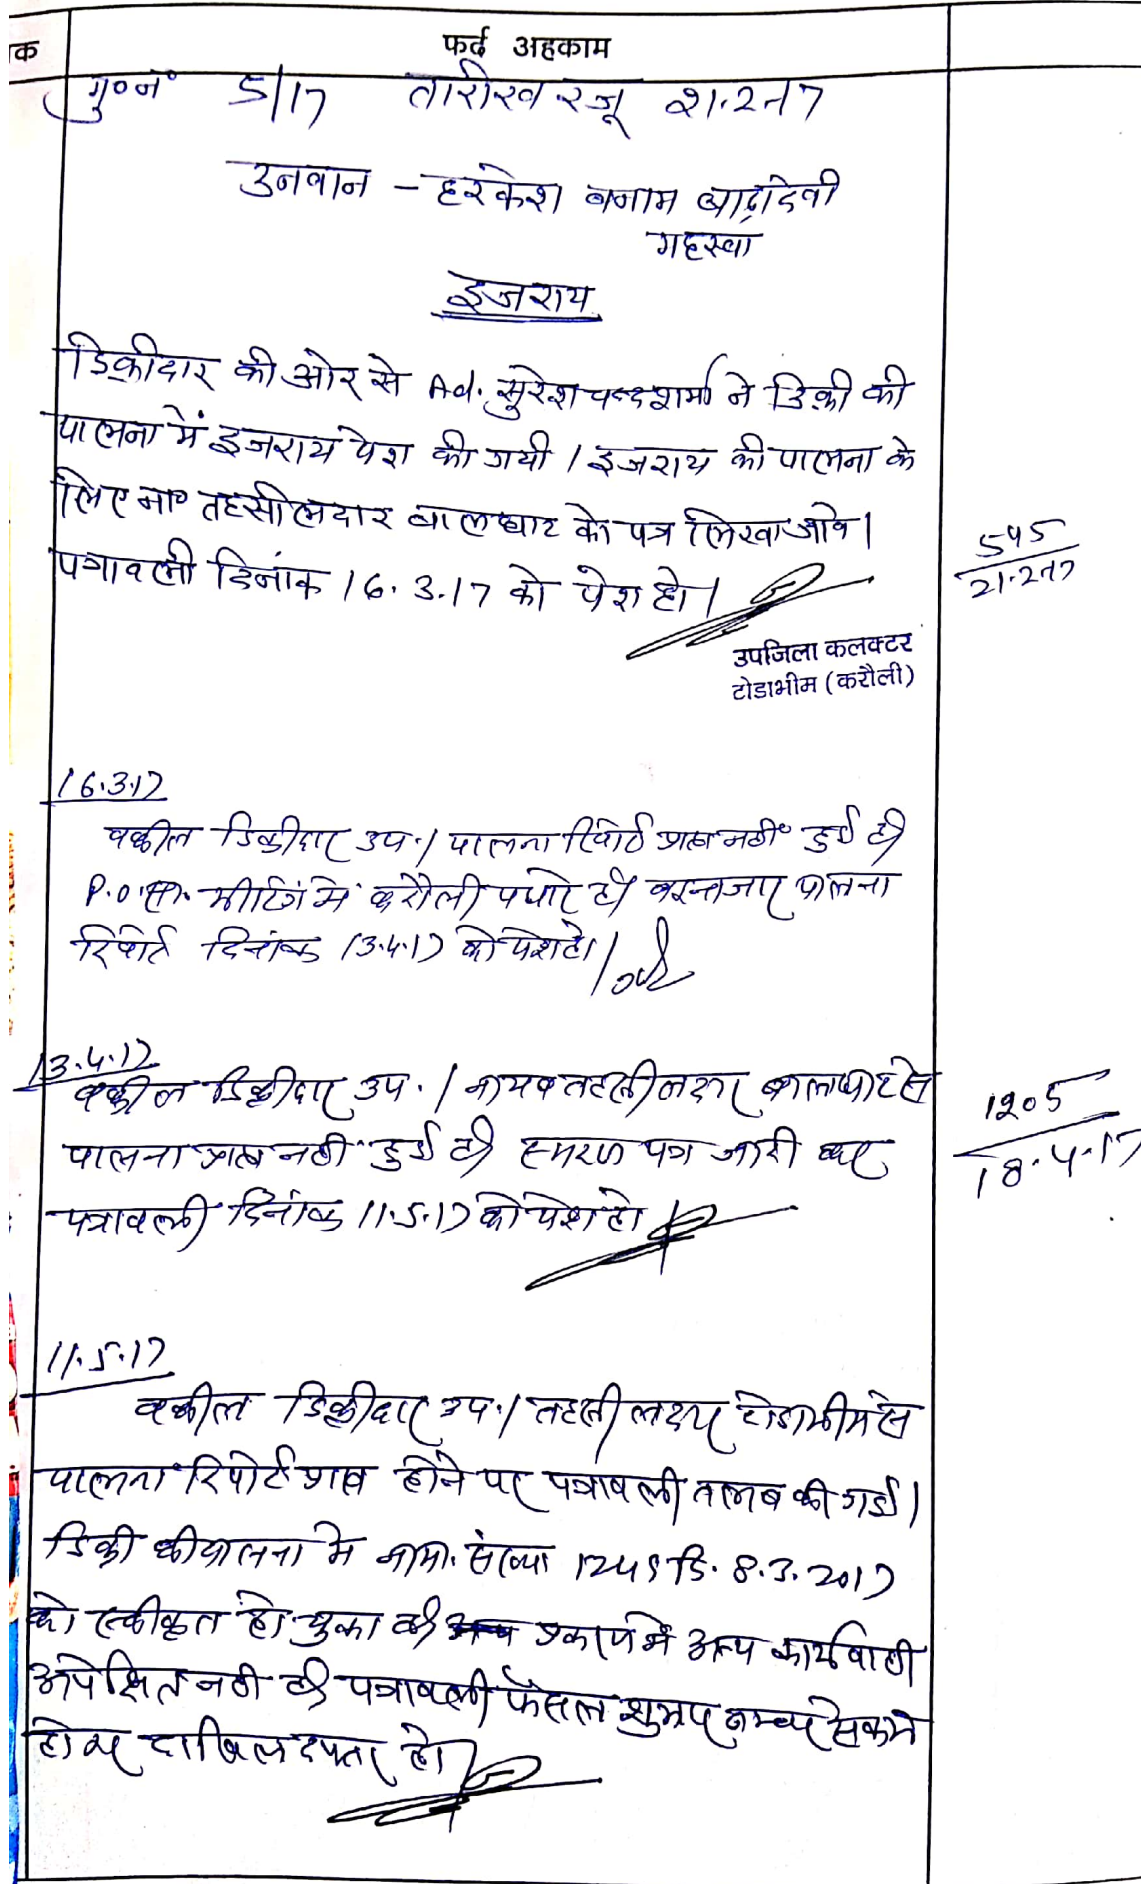 क
फर्द अहकाम
मु०नं० 5/17 तारीख रजू 21.2.17
उनवान – हरकेश बनाम
इजराय
डिक्रीदार की ओर से Ad. सुरेश चन्द शर्मा ने डिक्री की
पालना में इजराय पेश की गयी। इजराय की पालना के
लिए ना० तहसीलदार बालघाट को पत्र लिखा जावे।
पत्रावली दिनांक 16.3.17 को पेश हो।
545
21.2.17
उपजिला कलक्टर
टोडाभीम (करौली)
16.3.17
वकील डिक्रीदार उप.। पालना रिपोर्ट प्राप्त नहीं हुई है
P.O. सा. मीटिंग में करौली पधारे है वइन्तजार पालना
रिपोर्ट दिनांक 13.4.17 को पेश हो।
13.4.17
वकील डिक्रीदार उप.। नायब तहसीलदार बालघाट से
पालना प्राप्त नहीं हुई है स्मरण पत्र जारी कर
पत्रावली दिनांक 11.5.17 को पेश हो।
1205
18.4.17
11.5.17
वकील डिक्रीदार उप.। तहसीलदार टोडाभीम से
पालना रिपोर्ट प्राप्त होने पर पत्रावली तलब की गई।
डिक्री की पालना में नामा. संख्या 1249 दि. 8.3.2017
को स्वीकृत हो चुका है प्रकरण में अन्य कार्यवाही
अपेक्षित नहीं है पत्रावली फैसल शुमार नम्बर से कम
होकर दाखिल दफ्तर हो।